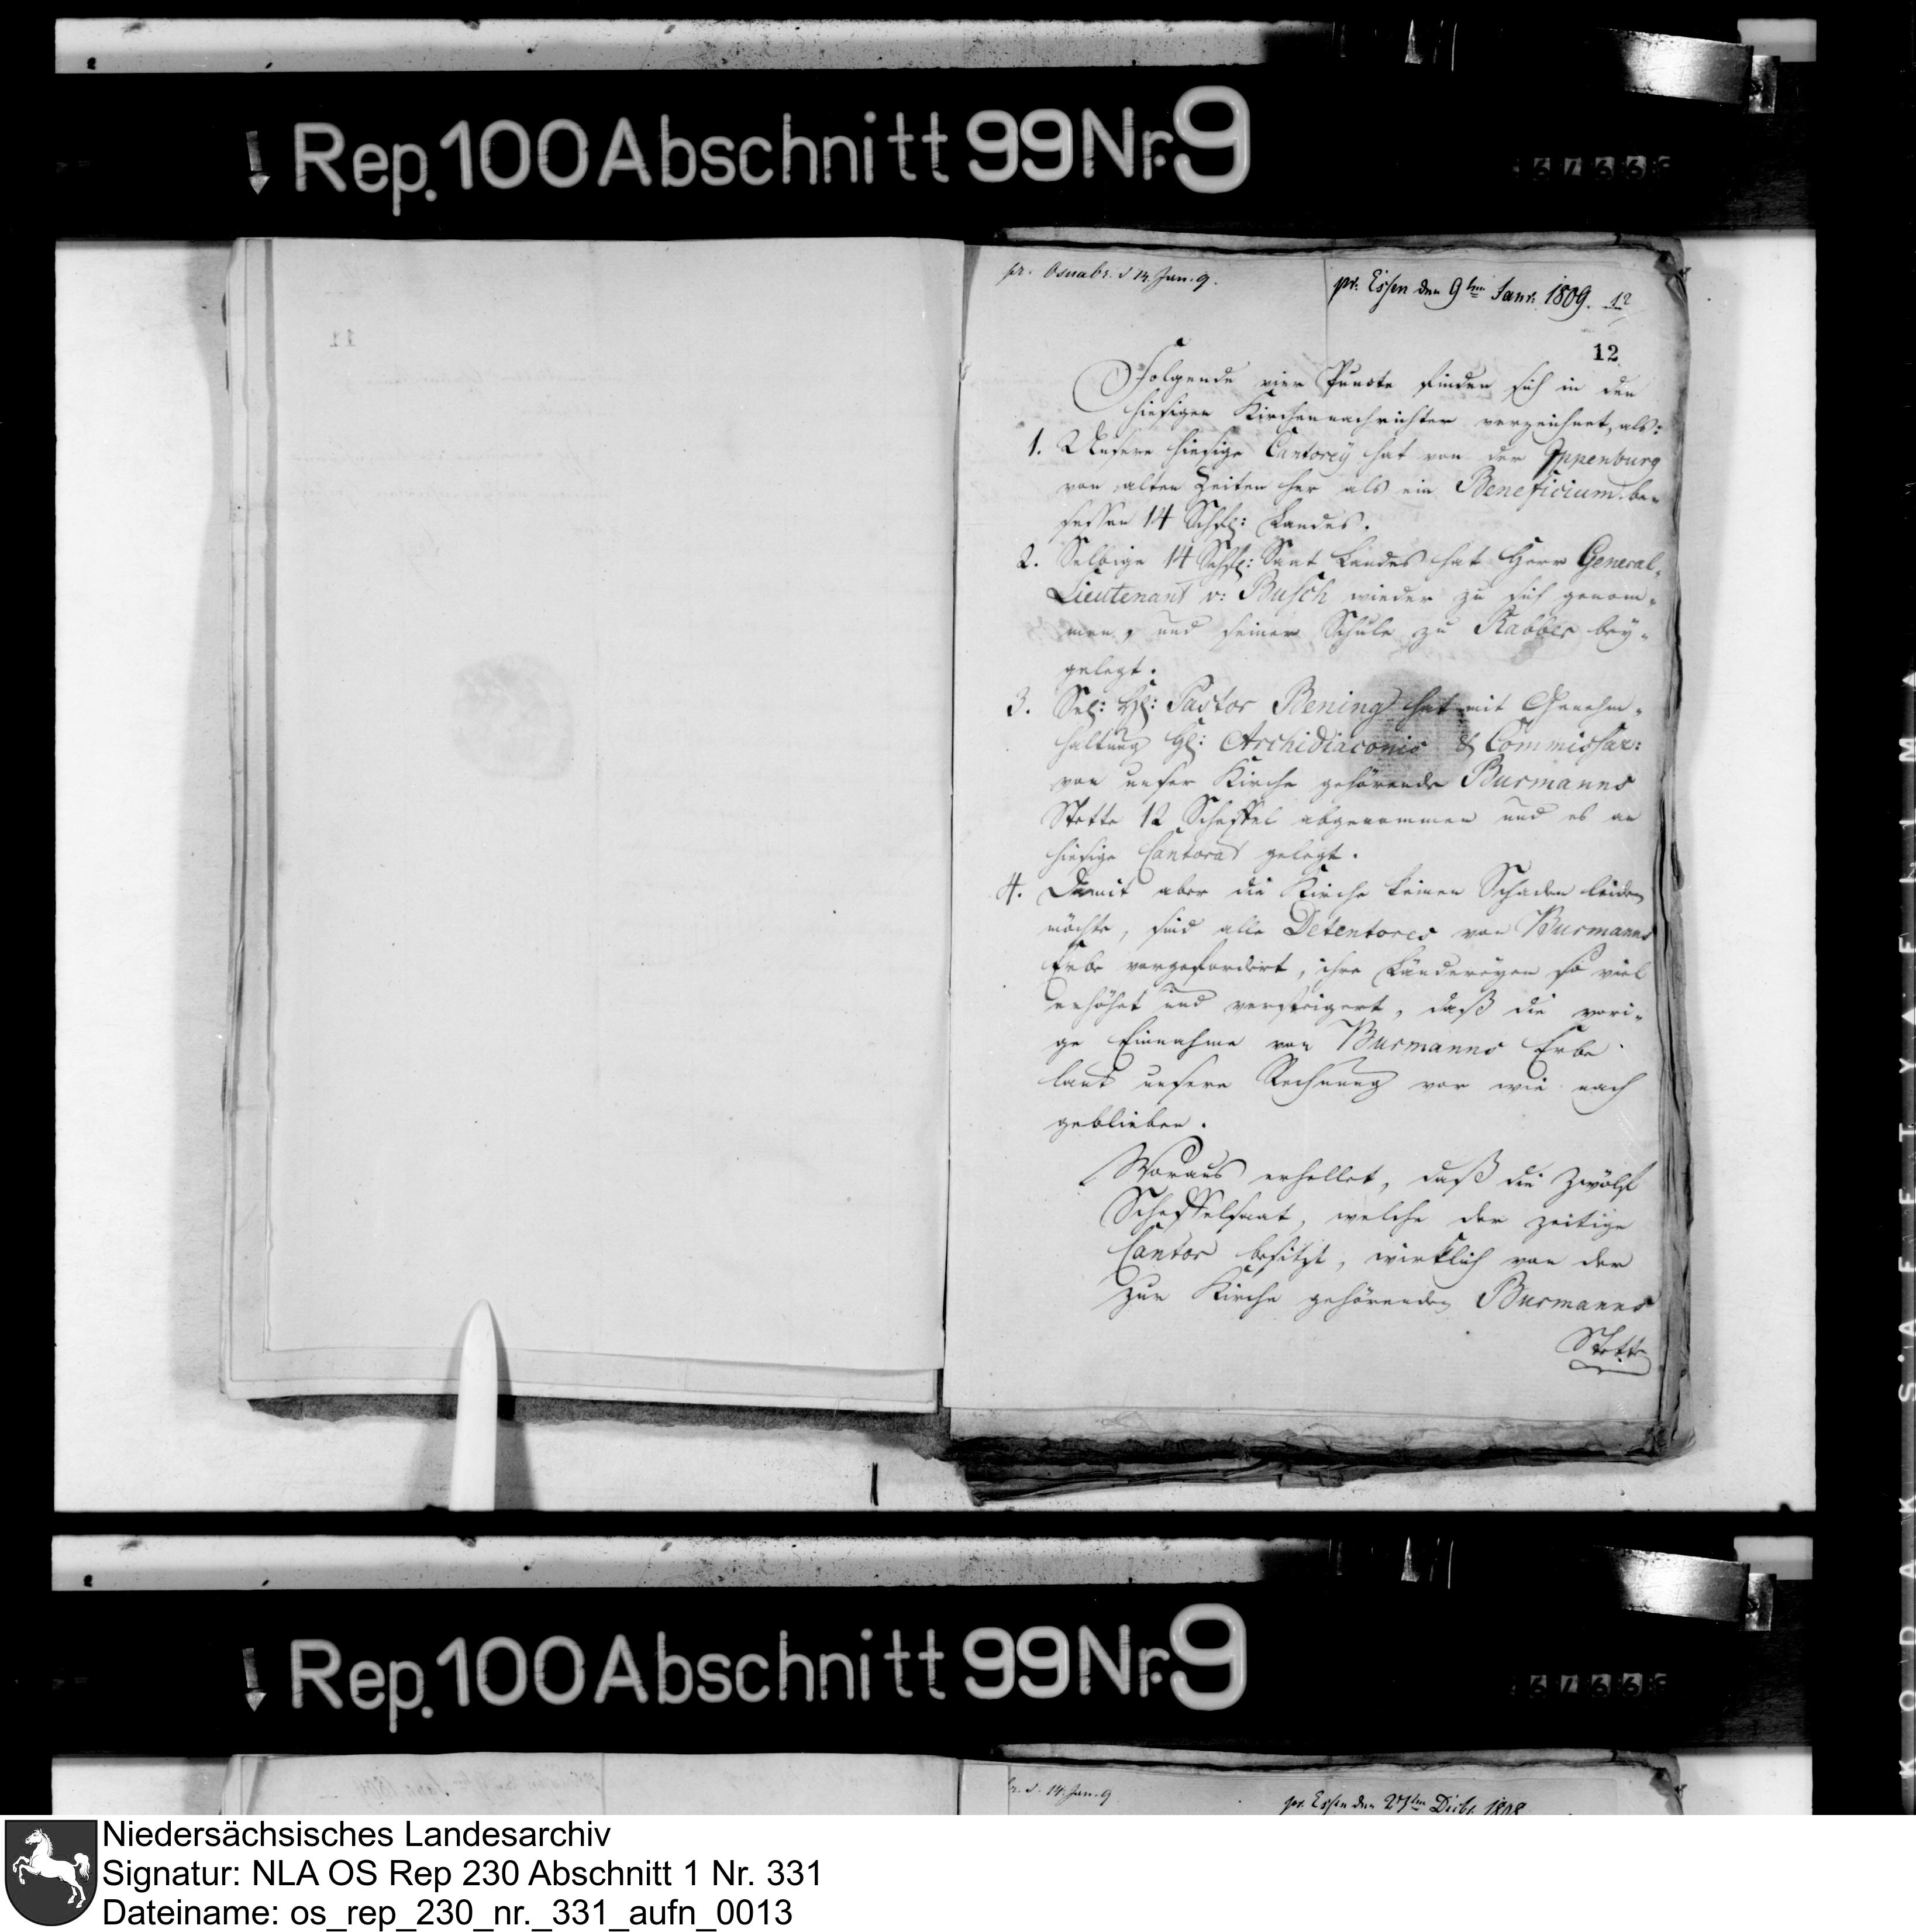 Rep. 100 Abschnitt 99 Nr. 9
pr. Osnabr. d 14. Jan. 9.
pr. Essen den 9ten Janr. 1809. 12
12
Folgende vier Puncte finden sich in den
hiesigen Kirchennachrichten verzeichnet, als:
1. Unsere hiesige Cantorey hat von der Ippenburg
von alten Zeiten her als ein Beneficium be-
sessen 14 Schfl: Landes.
2. Selbige 14 Schfl: Saat Landes hat Herr General-
Lieutenant v: Busch wieder zu sich genom-
men, und seiner Schule zu Rabber bey-
gelegt.
3. Sel: Hl: Pastor Bening hat mit Genehm-
haltung Hl: Archidiaconis & Commissar:
von unser Kirche gehörende Burmanns
Stette 12 Scheffel abgenommen und es an
hiesige Cantorat gelegt.
4. Damit aber die Kirche keinen Schaden leiden
möchte, sind alle Detentores von Burmanns
Erbe vorgefordert, ihre Ländereyen so viel
erhöhet und versteigert, daß die vori-
ge Einnahme von Burmanns Erbe
laut unsere Rechnung vor wie nach
geblieben.
Woraus erhellet, daß die zwölf
Scheffelsaat, welche der zeitige
Cantor besitzt, wirklich von der
zur Kirche gehörenden Burmanns
Stette
Rep. 100 Abschnitt 99 Nr. 9
d. 14. Jan. 9
pr. Essen den Decbr. 1808
Niedersächsisches Landesarchiv
Signatur: NLA OS Rep 230 Abschnitt 1 Nr. 331
Dateiname: os_rep_230_nr._331_aufn_0013